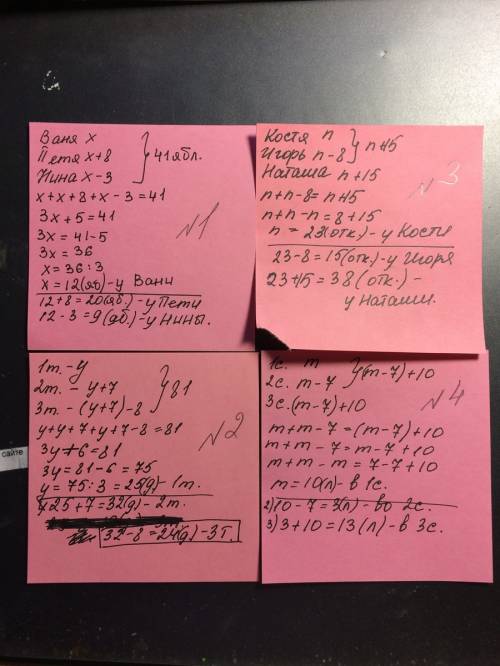 Ваня x
Петя x+8 } 41 ябл.
Нина x-3
x+x+8+x-3=41
3x+5=41
3x=41-5
3x=36
x=36:3
x=12(яб)-у Вани
12+8=20(яб.)-у Пети
12-3=9(яб.)-у Нины.
N1
Костя n
Игорь n-8 } n+15
Наташа n+15
n+n-8=n+15
n+n-n=8+15
n=23(отк.)-у Кости
23-8=15(отк.)-у Игоря
23+15=38(отк.)-
у Наташи.
N3
1т.-y
2т. - y+7 } 81
3т - (y+7)-8
y+y+7+y+7-8=81
3y+6=81
3y=81-6=75
y=75:3=25(д)-1т.
25+7=32(д)-2т.
32-8=24(д)-3т.
N2
1с. m
2с. m-7 } (m-7)+10
3с.(m-7)+10
m+m-7=(m-7)+10
m+m-7=m-7+10
m+m-m=7-7+10
m=10(л)-в 1с.
2)10-7=3(л)-во 2с.
3)3+10=13(л)-в 3с.
N4
сайте